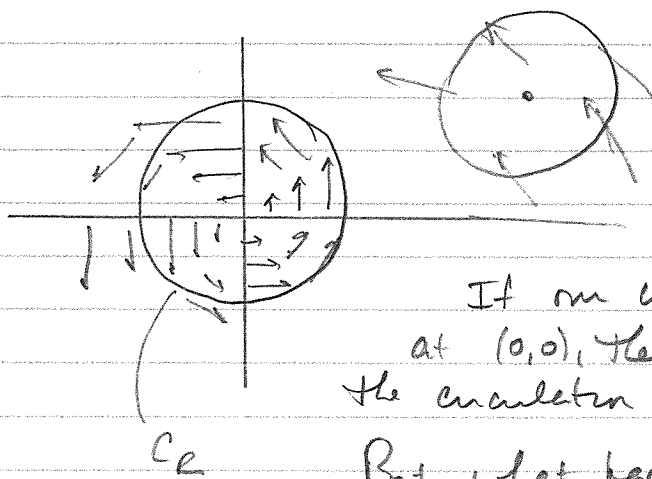 If our c
at (0,0), the
the circulation
C_R
But what hap